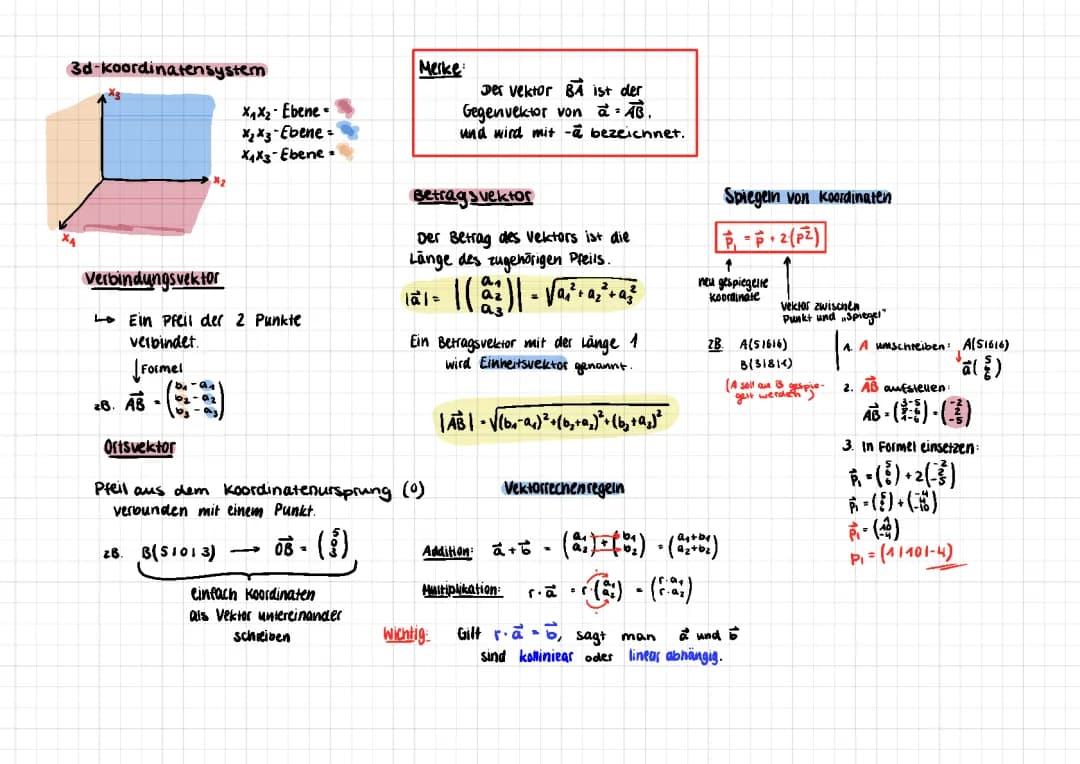 3d-Koordinatensystem
x₃
x₂
x₁
x₁x₂-Ebene =
x₂x₃-Ebene =
x₁x₃-Ebene =
Verbindungsvektor
↳ Ein Pfeil der 2 Punkte
verbindet.
↓ Formel
zB. A⃗B⃗ = (b₁-a₁
b₂-a₂
b₃-a₃)
Ortsvektor
Pfeil aus dem Koordinatenursprung (0)
verbunden mit einem Punkt.
zB. B(5|0|3) → O⃗B⃗ = (5
0
3)
einfach Koordinaten
als Vektor untereinander
schreiben
Merke:
Der Vektor B⃗A⃗ ist der
Gegenvektor von a⃗ = A⃗B⃗,
und wird mit -a⃗ bezeichnet.
Betragsvektor
Der Betrag des Vektors ist die
Länge des zugehörigen Pfeils.
|a⃗| = |(a₁
a₂
a₃)| = √a₁²+a₂²+a₃²
Ein Betragsvektor mit der Länge 1
wird Einheitsvektor genannt.
|A⃗B⃗| = √(b₁-a₁)²+(b₂+a₂)²+(b₃+a₃)²
Vektorrechenregeln
Addition: a⃗+b⃗ = (a₁ a₂) + (b₁ b₂) = (a₁+b₁ a₂+b₂)
Multiplikation: r·a⃗ = r·(a₁ a₂) = (r·a₁ r·a₂)
Wichtig: Gilt r·a⃗ = b⃗, sagt man a⃗ und b⃗
sind kolliniear oder linear abhängig.
Spiegeln von Koordinaten
p⃗₁ = p⃗ + 2(p⃗z⃗)
neu gespiegelte
Koordinate
Vektor zwischen
Punkt und „Spiegel"
zB. A(5|6|6)
B(3|8|1)
(A soll an B gespie-
gelt werden)
1. A umschreiben: A(5|6|6)
a⃗(5
6
6)
2. A⃗B⃗ aufstellen:
A⃗B⃗ = (3-5 8-6 1-6) = (-2 2 -5)
3. In Formel einsetzen:
p⃗₁ = (5 6 6) + 2(-2 2 -5)
p⃗₁ = (5 6 6) + (-4 4 -10)
p⃗₁ = (1 10 -4)
p₁ = (1|10|-4)